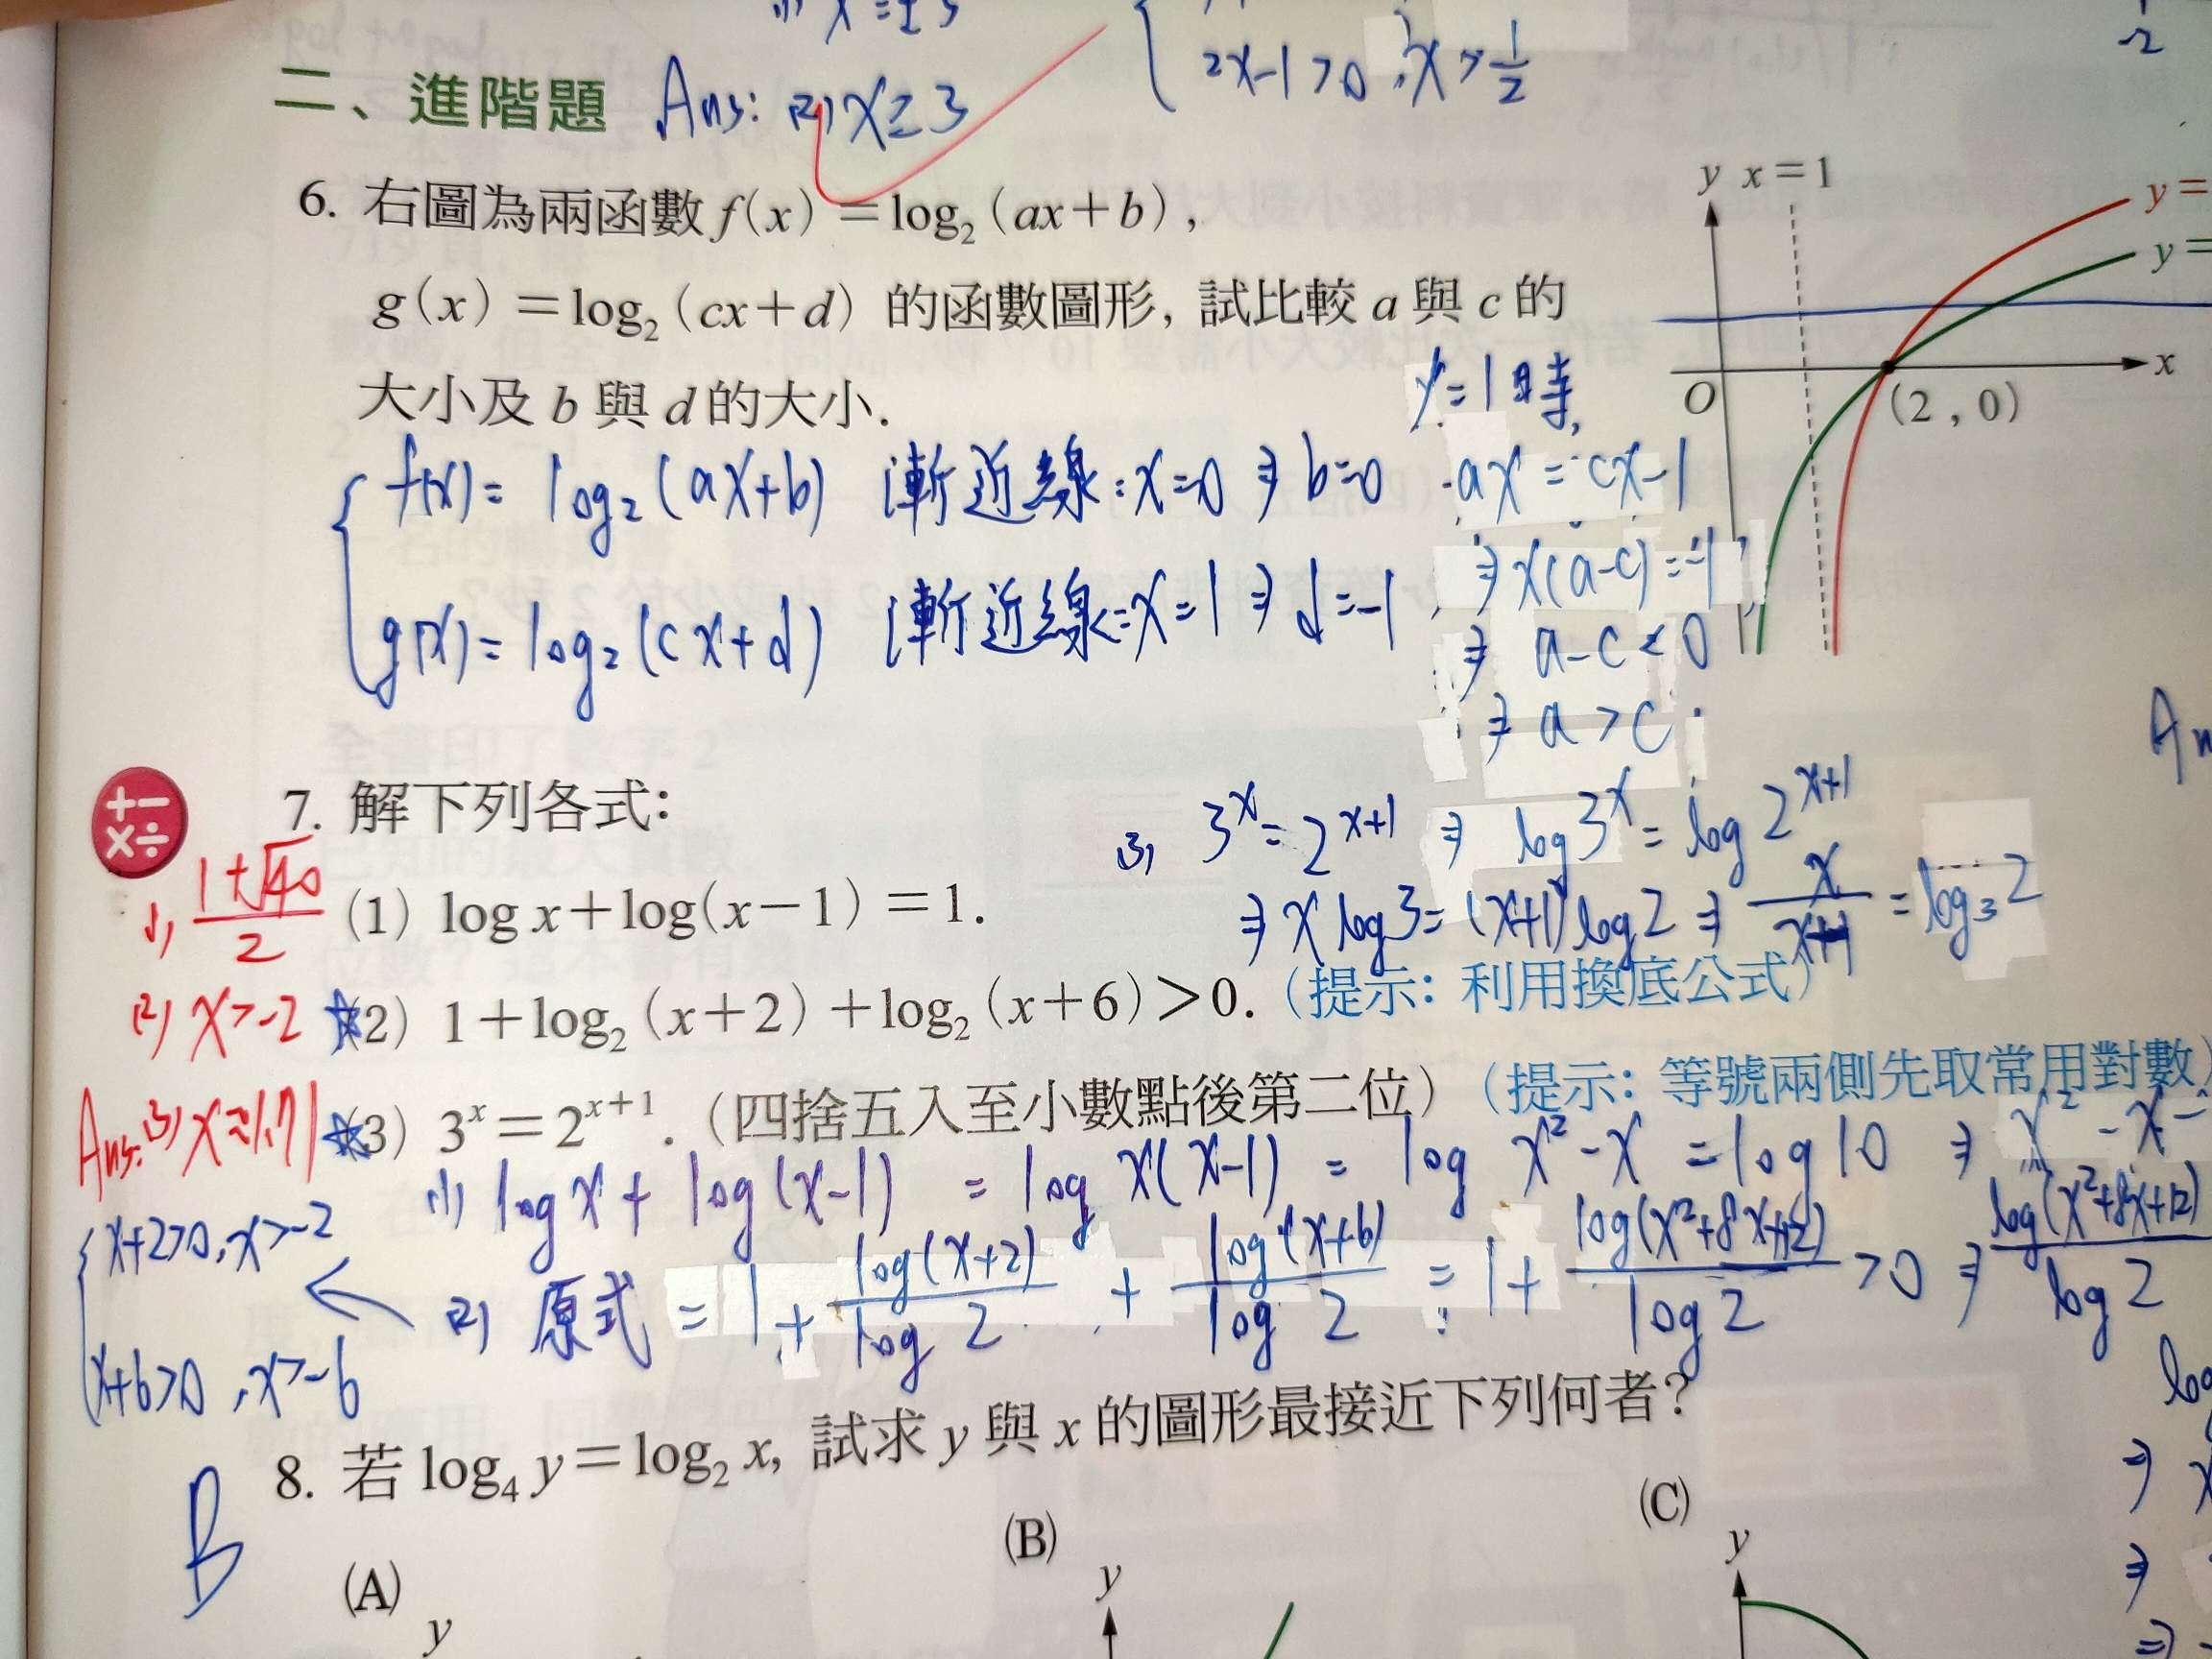 2x-1>0, x>1/2
二、進階題 Ans: (2) x≥3
6. 右圖為兩函數 f(x) = log₂(ax+b),
g(x) = log₂(cx+d) 的函數圖形, 試比較 a 與 c 的
大小及 b 與 d 的大小.
y x=1
y=
y=
x
O
(2, 0)
f(x) = log₂(ax+b) 漸近線: x=0 ⇒ b=0
g(x) = log₂(cx+d) 漸近線: x=1 ⇒ d=-1
y=1時,
ax = cx-1
⇒ x(a-c) = -1
⇒ a-c<0
⇒ a>c
7. 解下列各式:
(3) 3ˣ = 2ˣ⁺¹ ⇒ log 3ˣ = log 2ˣ⁺¹
⇒ x log3 = (x+1) log2 ⇒ x/(x+1) = log₃2
(1) (1+√40)/2
(1) log x + log(x-1) = 1.
(2) x>-2
(2) 1+log₂(x+2)+log₂(x+6)>0. (提示: 利用換底公式)
Ans: (3) x≈1.71
(3) 3ˣ=2ˣ⁺¹. (四捨五入至小數點後第二位) (提示: 等號兩側先取常用對數)
(1) log x + log(x-1) = log x(x-1) = log x²-x = log10 ⇒ x²-x=
(2) 原式 = 1 + log(x+2)/log 2 + log(x+6)/log 2 = 1 + log(x²+8x+12)/log 2 >0 ⇒ log(x²+8x+12)/log 2
x+2>0, x>-2
x+6>0, x>-6
8. 若 log₄ y = log₂ x, 試求 y 與 x 的圖形最接近下列何者?
B
(A)
y
(B)
y
(C)
y